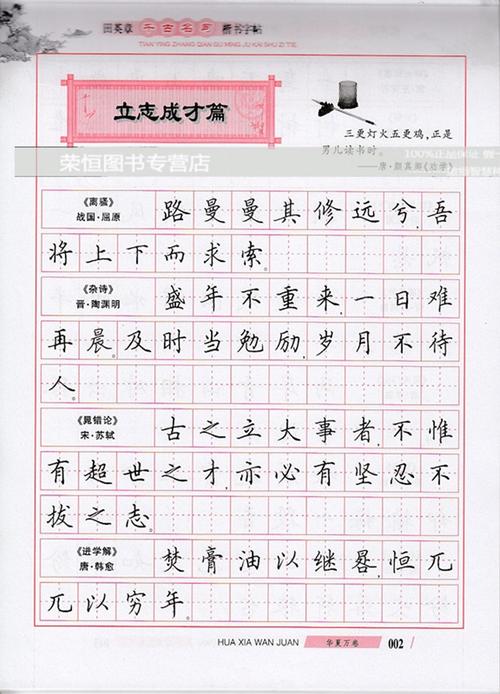 田英章 千古名句 楷书字帖
TIAN YING ZHANG QIAN GU MING JU KAI SHU ZI TIE
立志成才篇
三更灯火五更鸡,正是
男儿读书时。
——唐·颜真卿《劝学》
荣恒图书专营店
100%正品保证 假一
《离骚》
战国·屈原
路曼曼其修远兮,吾
将上下而求索。
《杂诗》
晋·陶渊明
盛年不重来,一日难
再晨。及时当勉励,岁月不待
人。
《晁错论》
宋·苏轼
古之立大事者,不惟
有超世之才,亦必有坚忍不
拔之志。
《进学解》
唐·韩愈
焚膏油以继晷,恒兀
兀以穷年。
HUA XIA WAN JUAN 华夏万卷 002